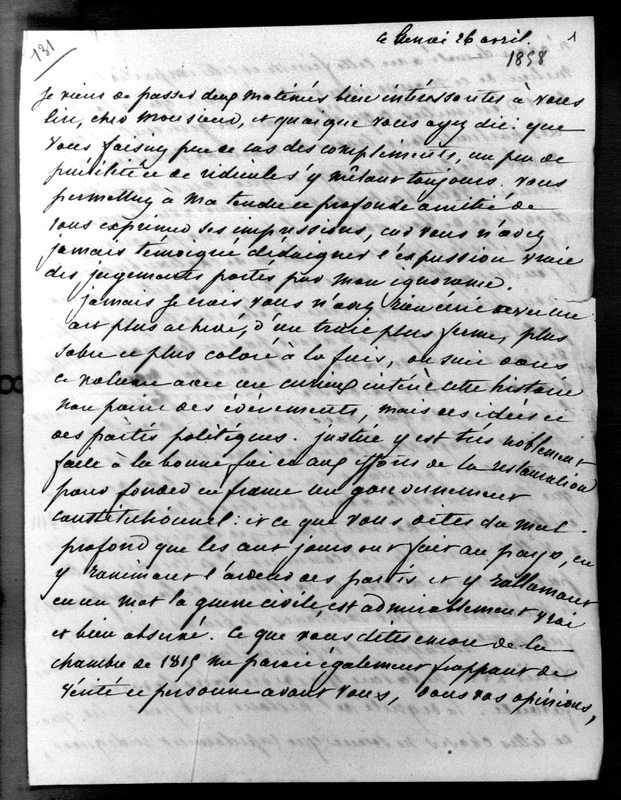 131
1
ce lundi 26 avril.
1858
Je viens de passer deux matinées bien intéressantes à vous
lire, cher Monsieur, et quoique vous ayez dit que
vous faisiez peu de cas des compliments, un peu de
puérilité et de ridicule s'y mêlant toujours. vous
permettrez à ma tendre et profonde amitié de
vous exprimer ses impressions, car vous n'avez
jamais témoigné dédaigner l'expression vraie
des jugements portés par mon ignorance.
jamais je crois vous n'avez rien écrit
art plus achevé, d'un trait plus ferme, plus
sobre et plus coloré à la fois, on suit dans
ce volume avec un curieux intérêt cette histoire
non point des événements, mais des idées et
des partis politiques. justice y est très noblement
faite à la bonne foi et aux efforts de la restauration
pour fonder en france un gouvernement
constitutionnel: et ce que vous dites du mal
profond que les cent jours ont fait au pays, en
y ranimant l'ardeur des partis et y rallumant
en un mot la guerre civile, est admirablement vrai
et bien observé. Ce que vous dites encore de la
chambre de 1815 me paraît également frappant de
vérité et personne avant vous, dans vos opinions,